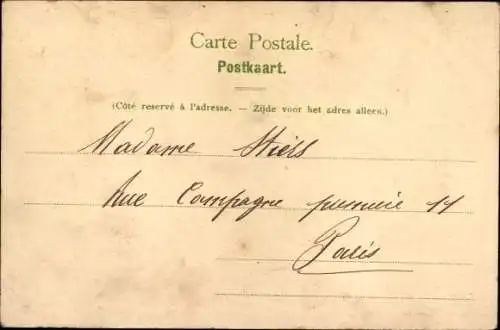 Carte Postale.
Postkaart.
(Côté reservé à l'adresse. — Zijde voor het adres alleen.)
Madame Stiels
Rue Campagne première 17
Paris